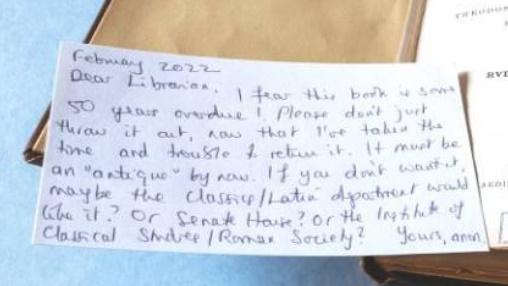 February 2022
Dear Librarian. I fear this book is some
50 years overdue! Please don't just
throw it out, now that I've taken the
time and trouble to return it. It must be
an "antique" by now. If you don't want it,
maybe the Classics/Latin department would
like it? Or Senate House? Or the Institute of
Classical Studies/Roman Society? Yours, anon.
THEODOR